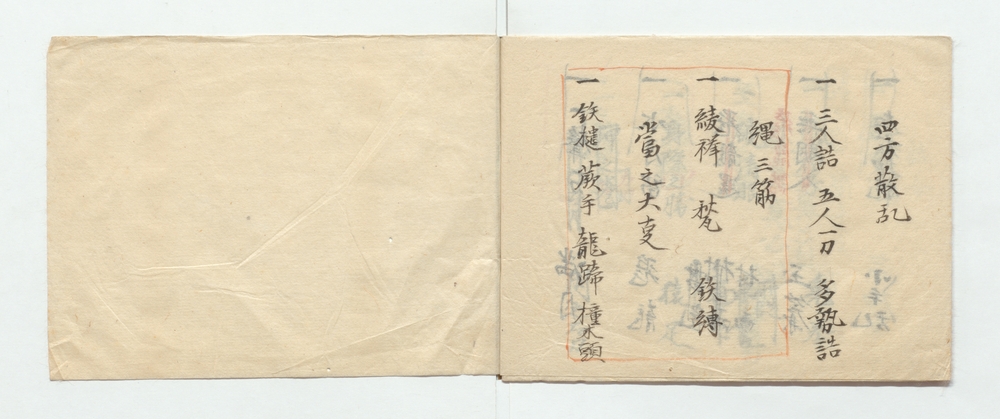 四方散乱
一 三人詰 五人一刀 多勢詰
縄 三筋
一 綾襷 梵 鉄縛
當之大叓
一 鉄槌 蕨手 龍蹄 橦木頭